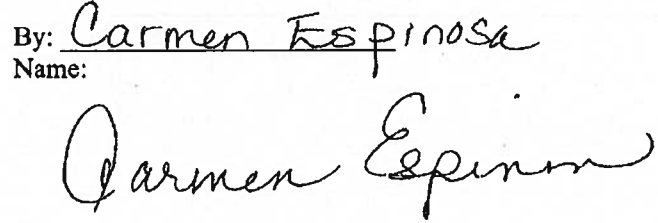 By: Carmen Espinosa
Name:
Carmen Espinosa